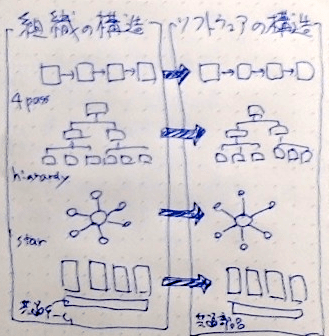 組織の構造
ソフトウェアの構造
4 pass
hierardy
star
共通チーム
共通部品